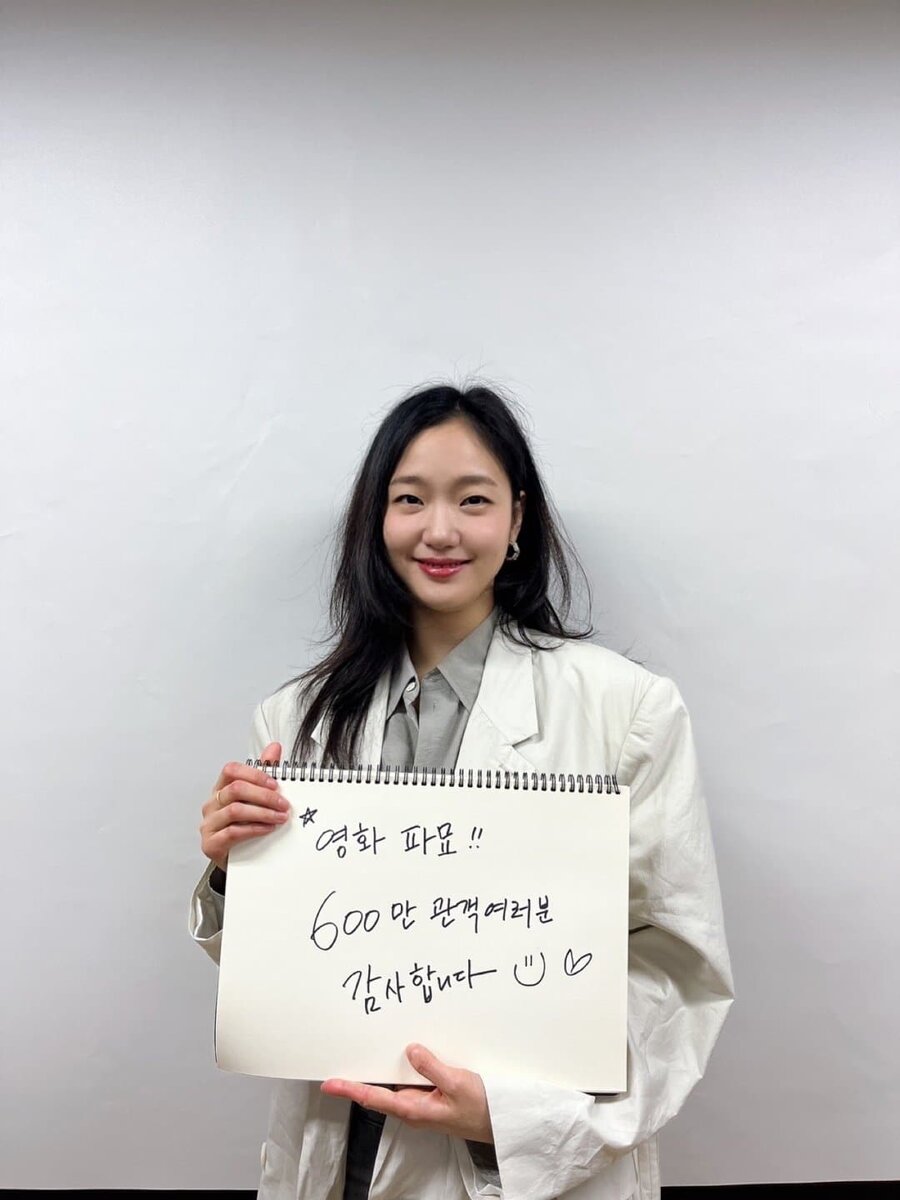 ☆ 영화 파묘!!
600만 관객여러분
감사합니다